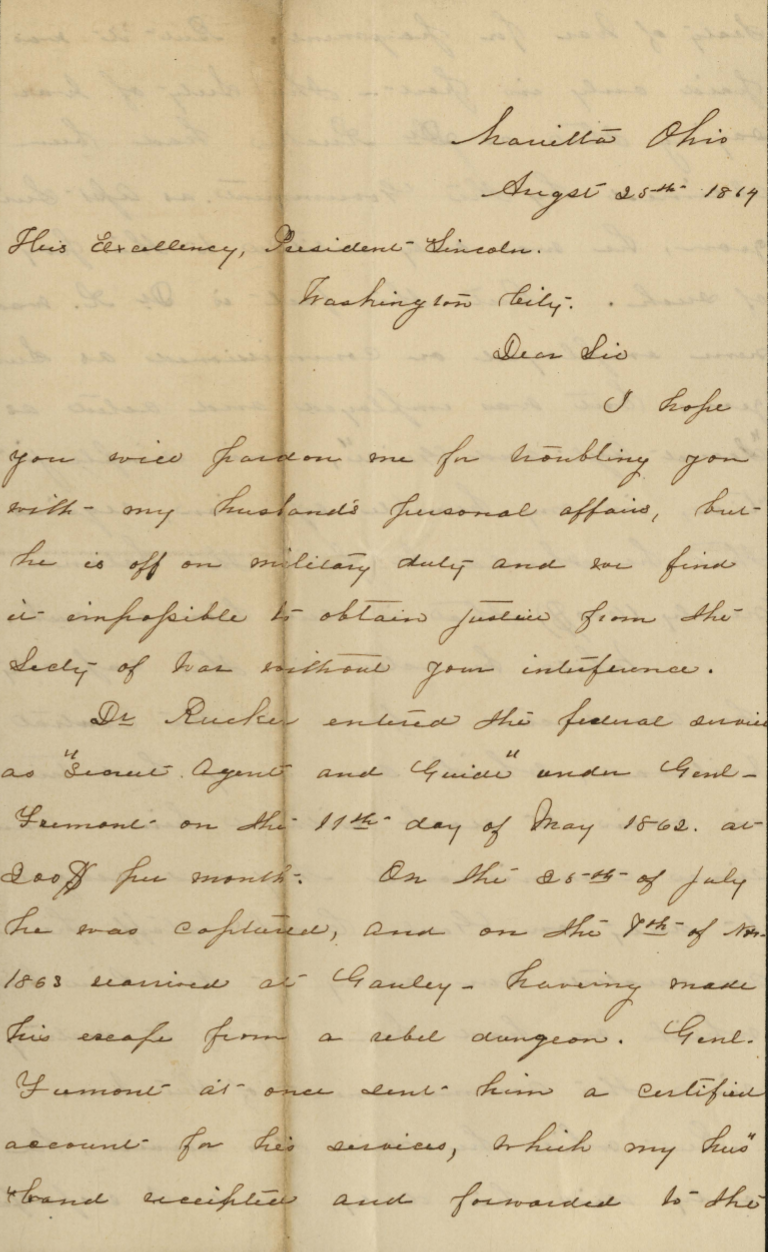 Marietta Ohio
Augst 25th 1864
His Excellency, President Lincoln.
Washington City.
Dear Sir
I hope
you will pardon me for troubling you
with my husband's personal affairs, but
he is off on military duty and we find
it impossible to obtain justice from the
Secty of War without your interference.
Dr Rucker entered the federal service
as "Secret Agent and Guide" under Genl
Fremont on the 11th day of May 1862. at
200$ per month. On the 25th of July
he was captured, and on the 7th of Nov
1863 arrived at Gauley - having made
his escape from a rebel dungeon. Genl.
Fremont at once sent him a certified
account for his services, which my hus"
"band receipted and forwarded to the